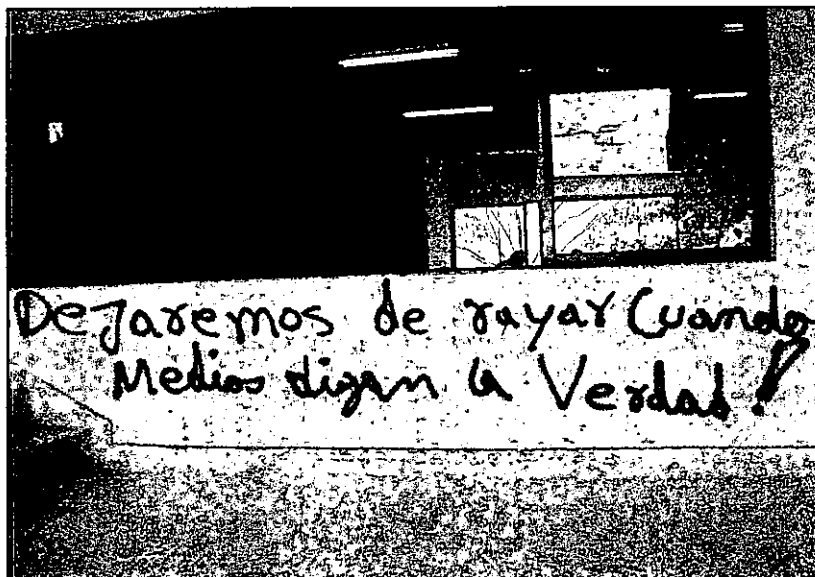 DeJaremos de rayar Cuando
Medios digan la Verdad!